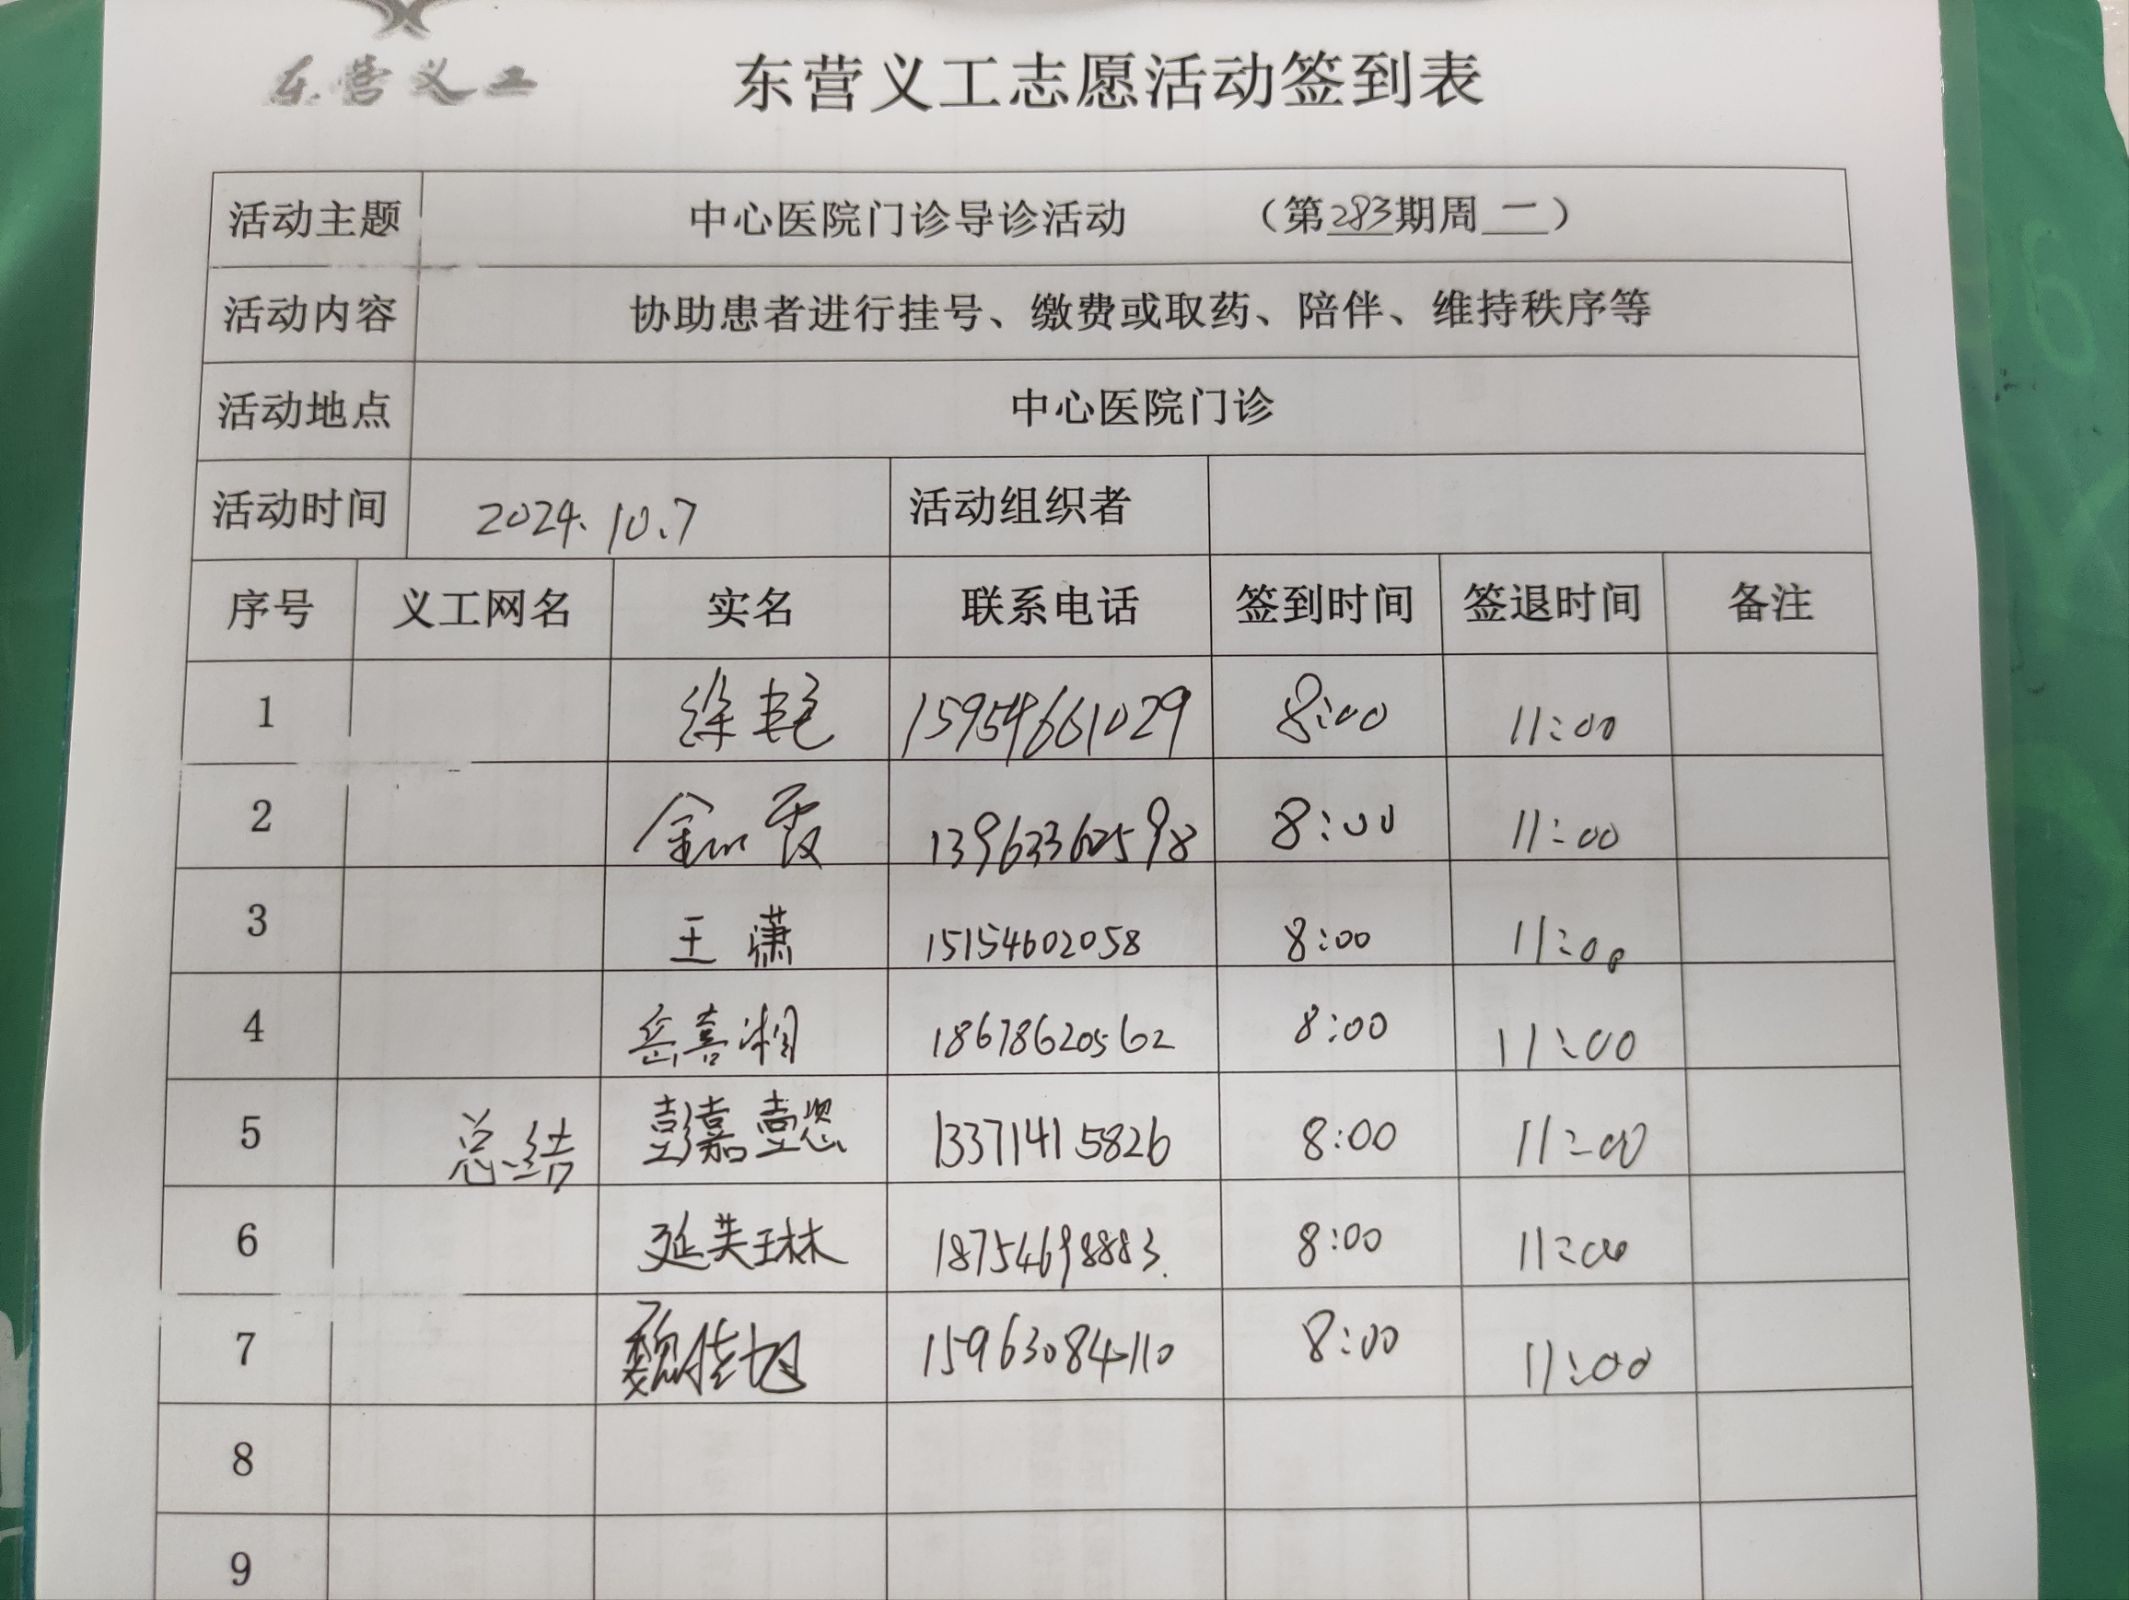 东营义工
东营义工志愿活动签到表
活动主题 中心医院门诊导诊活动 （第283期周二）
活动内容 协助患者进行挂号、缴费或取药、陪伴、维持秩序等
活动地点 中心医院门诊
活动时间 2024.10.7 活动组织者
序号 义工网名 实名 联系电话 签到时间 签退时间 备注
1 徐艳 15954661029 8:00 11:00
2 金霞 13963362598 8:00 11:00
3 王潇 15154602058 8:00 11:00
4 岳喜湘 18678620562 8:00 11:00
5 总结 彭嘉懿 13371415826 8:00 11:00
6 延英琳 18754698883. 8:00 11:00
7 魏佳旭 15963084110 8:00 11:00
8
9